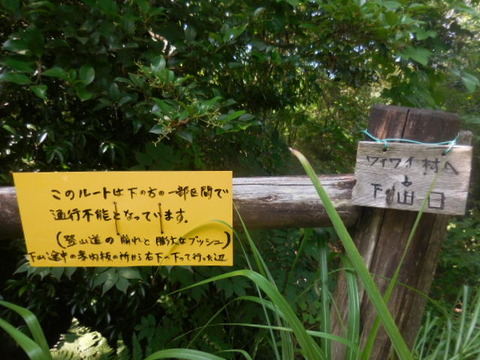 このルートは下の方の一部区間で
通行不能となっています。
(登山道の崩れと膨大なブッシュ)
下山途中の案内板の所から右下へ下って行った辺
ワイワイ村へ
↓
下山口